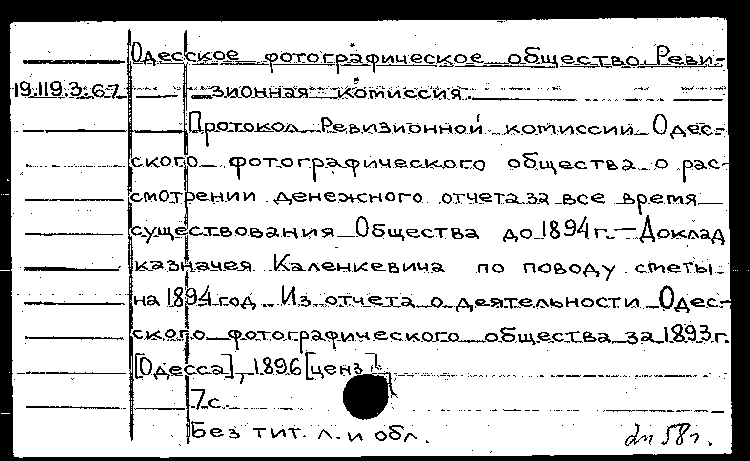 Одесское фотографическое общество. Реви-
19.119.3.67 зионная комиссия.
Протокол Ревизионной комиссии Одес-
ского фотографического общества о рас-
смотрении денежного отчета за все время
существования Общества до 1894 г. — Доклад
казначея Каленкевича по поводу сметы
на 1894 год. Из отчета о деятельности Одес-
ского фотографического общества за 1893 г.
[Одесса], 1896 [ценз.]
7 с.
Без тит. л. и обл. 58 г.